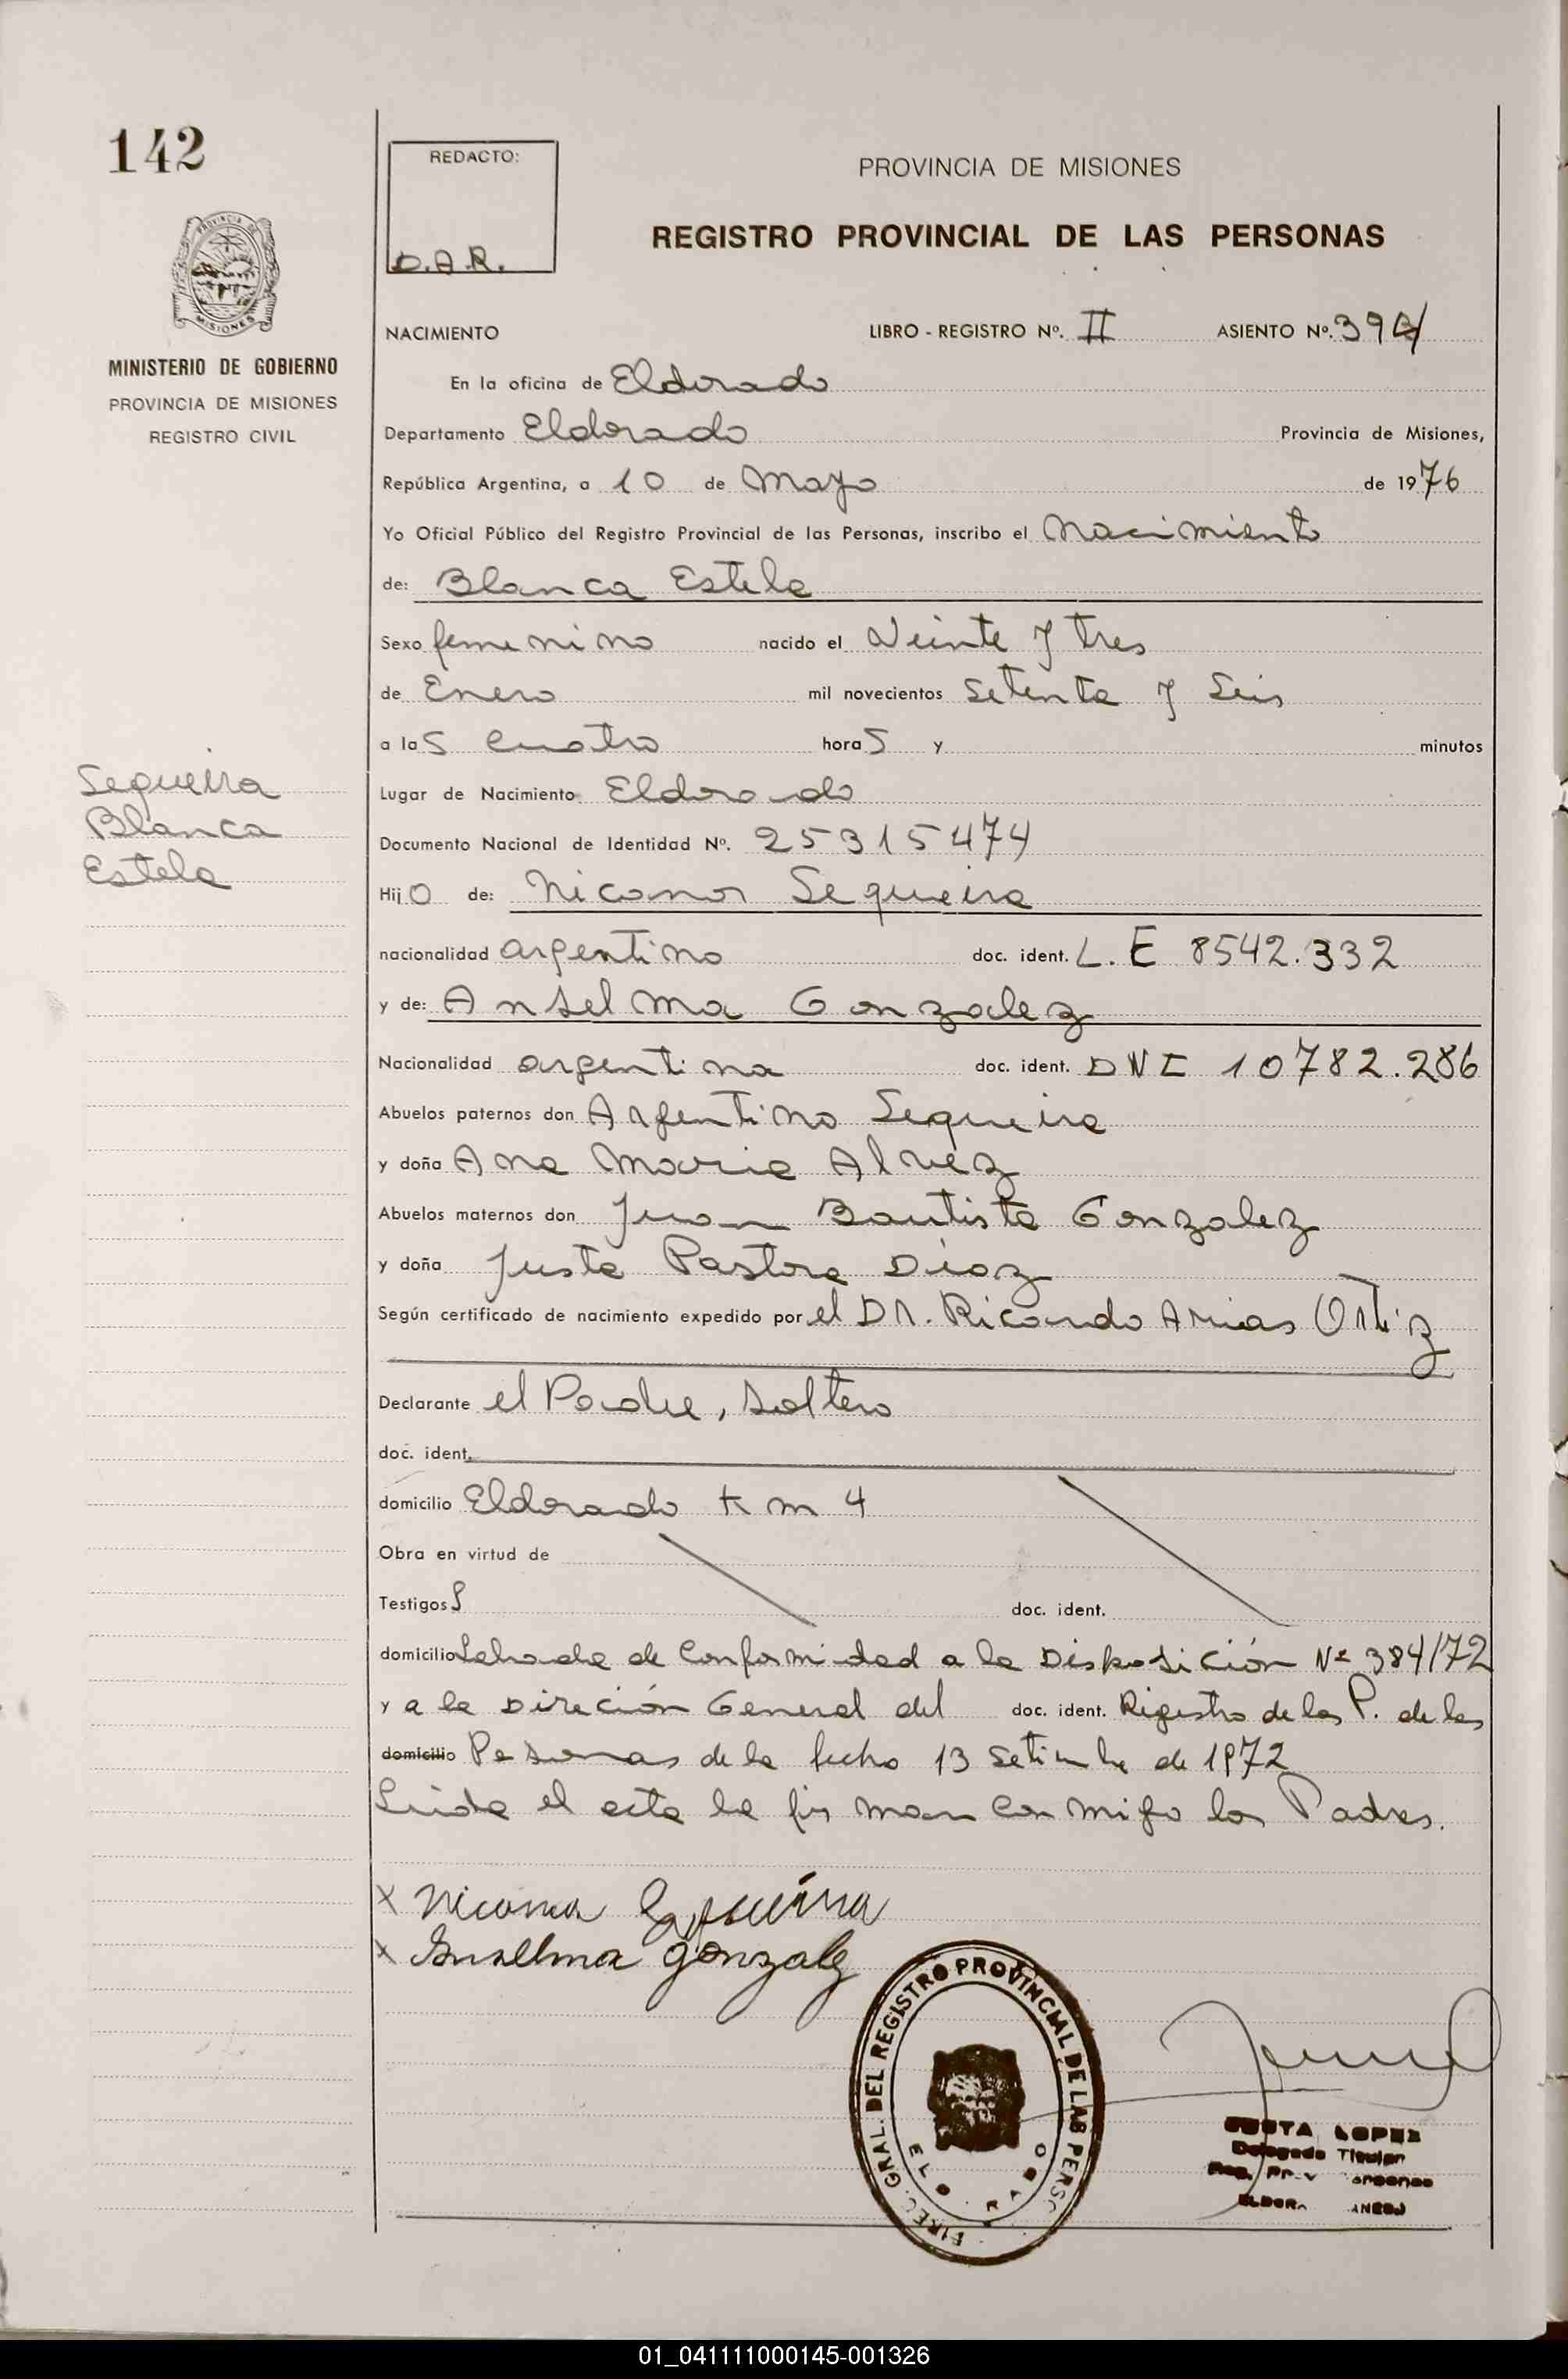 142
REDACTO:
D.A.R.
PROVINCIA DE MISIONES
REGISTRO PROVINCIAL DE LAS PERSONAS
PROVINCIA DE
MISIONES
MINISTERIO DE GOBIERNO
PROVINCIA DE MISIONES
REGISTRO CIVIL
NACIMIENTO LIBRO - REGISTRO Nº. II ASIENTO Nº.
En la oficina de Eldorado
Departamento Eldorado Provincia de Misiones,
República Argentina, a 10 de Mayo de 1976
Yo Oficial Público del Registro Provincial de las Personas, inscribo el Nacimiento
de: Blanca Estela
Sexo femenino nacido el Veinte y tres
de Enero mil novecientos Setenta y Seis
a las cuatro horas y minutos
Sequeira
Blanca
Estela
Lugar de Nacimiento Eldorado
Documento Nacional de Identidad Nº. 25315474
Hijo de: Nicanor Sequeira
nacionalidad argentino doc. ident. L.E 8542.332
y de: Anselma Gonzalez
Nacionalidad argentina doc. ident. DNI 10782.286
Abuelos paternos don Argentino Sequeira
y doña Ana Maria Alvez
Abuelos maternos don Juan Bautista Gonzalez
y doña Justa Pastora Diaz
Según certificado de nacimiento expedido por el Dr. Ricardo Arias Ortiz
Declarante el Padre, soltero
doc. ident.
domicilio Eldorado km 4
Obra en virtud de
Testigos doc. ident.
domicilio Labrada de Conformidad a la Disposición Nº 384/72
y a la Direción General del doc. ident. Registro de las P. de las
domicilio Pesonas de la fecha 13 Setiembre de 1972
Leida el acta la firman conmigo los Padres.
x Nicanor Sequeira
x Anselma gonzalez
GRAL. DEL REGISTRO PROVINCIAL DE LAS PERSO
LOPEZ
Delegado Titular
01_041111000145-001326